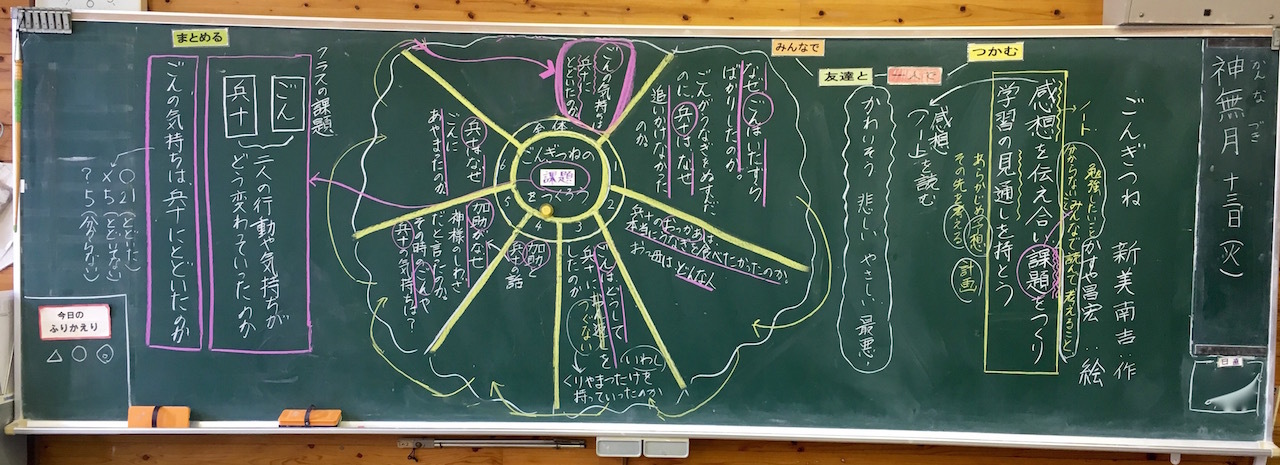 神無月 十三日(火)
かんな づき
日直
ごんぎつね 新美南吉:作
かすや昌宏:絵
つかむ
一人で
友達と
みんなで
まとめる
勉強したいこと
分からない みんなで読んで考えること
ノート
感想を伝え合い課題をつくり
学習の見通しを持とう
あらかじめ予想
その先を考える
計画
感想
ノートを読む
かわいそう 悲しい やさしい 最悪
なぜごんはいたずら
ばかりしたのか。
ごんがうなぎをぬすんだ
のに、兵十はなぜ
追いかけなかった
のか
兵十のおっかあは、
本当にうなぎを食べたかったのか。
お母はどんな人
ごんはどうして
兵十に
つぐない
を
したのか
いわし
くりやまつたけを
持っていったのか
加助
兵十の話
加助がなぜ
神様のしわざ
だと言ったのか。
その時のごんや
兵十の気持ちは?
兵十はなぜ
ごんに
あやまったのか
ごんの気持ちは
兵十に
とどいたのか
全体
ごんぎつねの
課題
をつくろう
2
3
4
5
6
クラスの課題
ごん
兵十
二人の行動や気持ちが
どう変わっていったのか
ごんの気持ちは、兵十にとどいたのか
○ 21(とどいた)
× 5(とどいていない)
? 5(分からない)
今日の
ふりかえり
△ ○ ◎